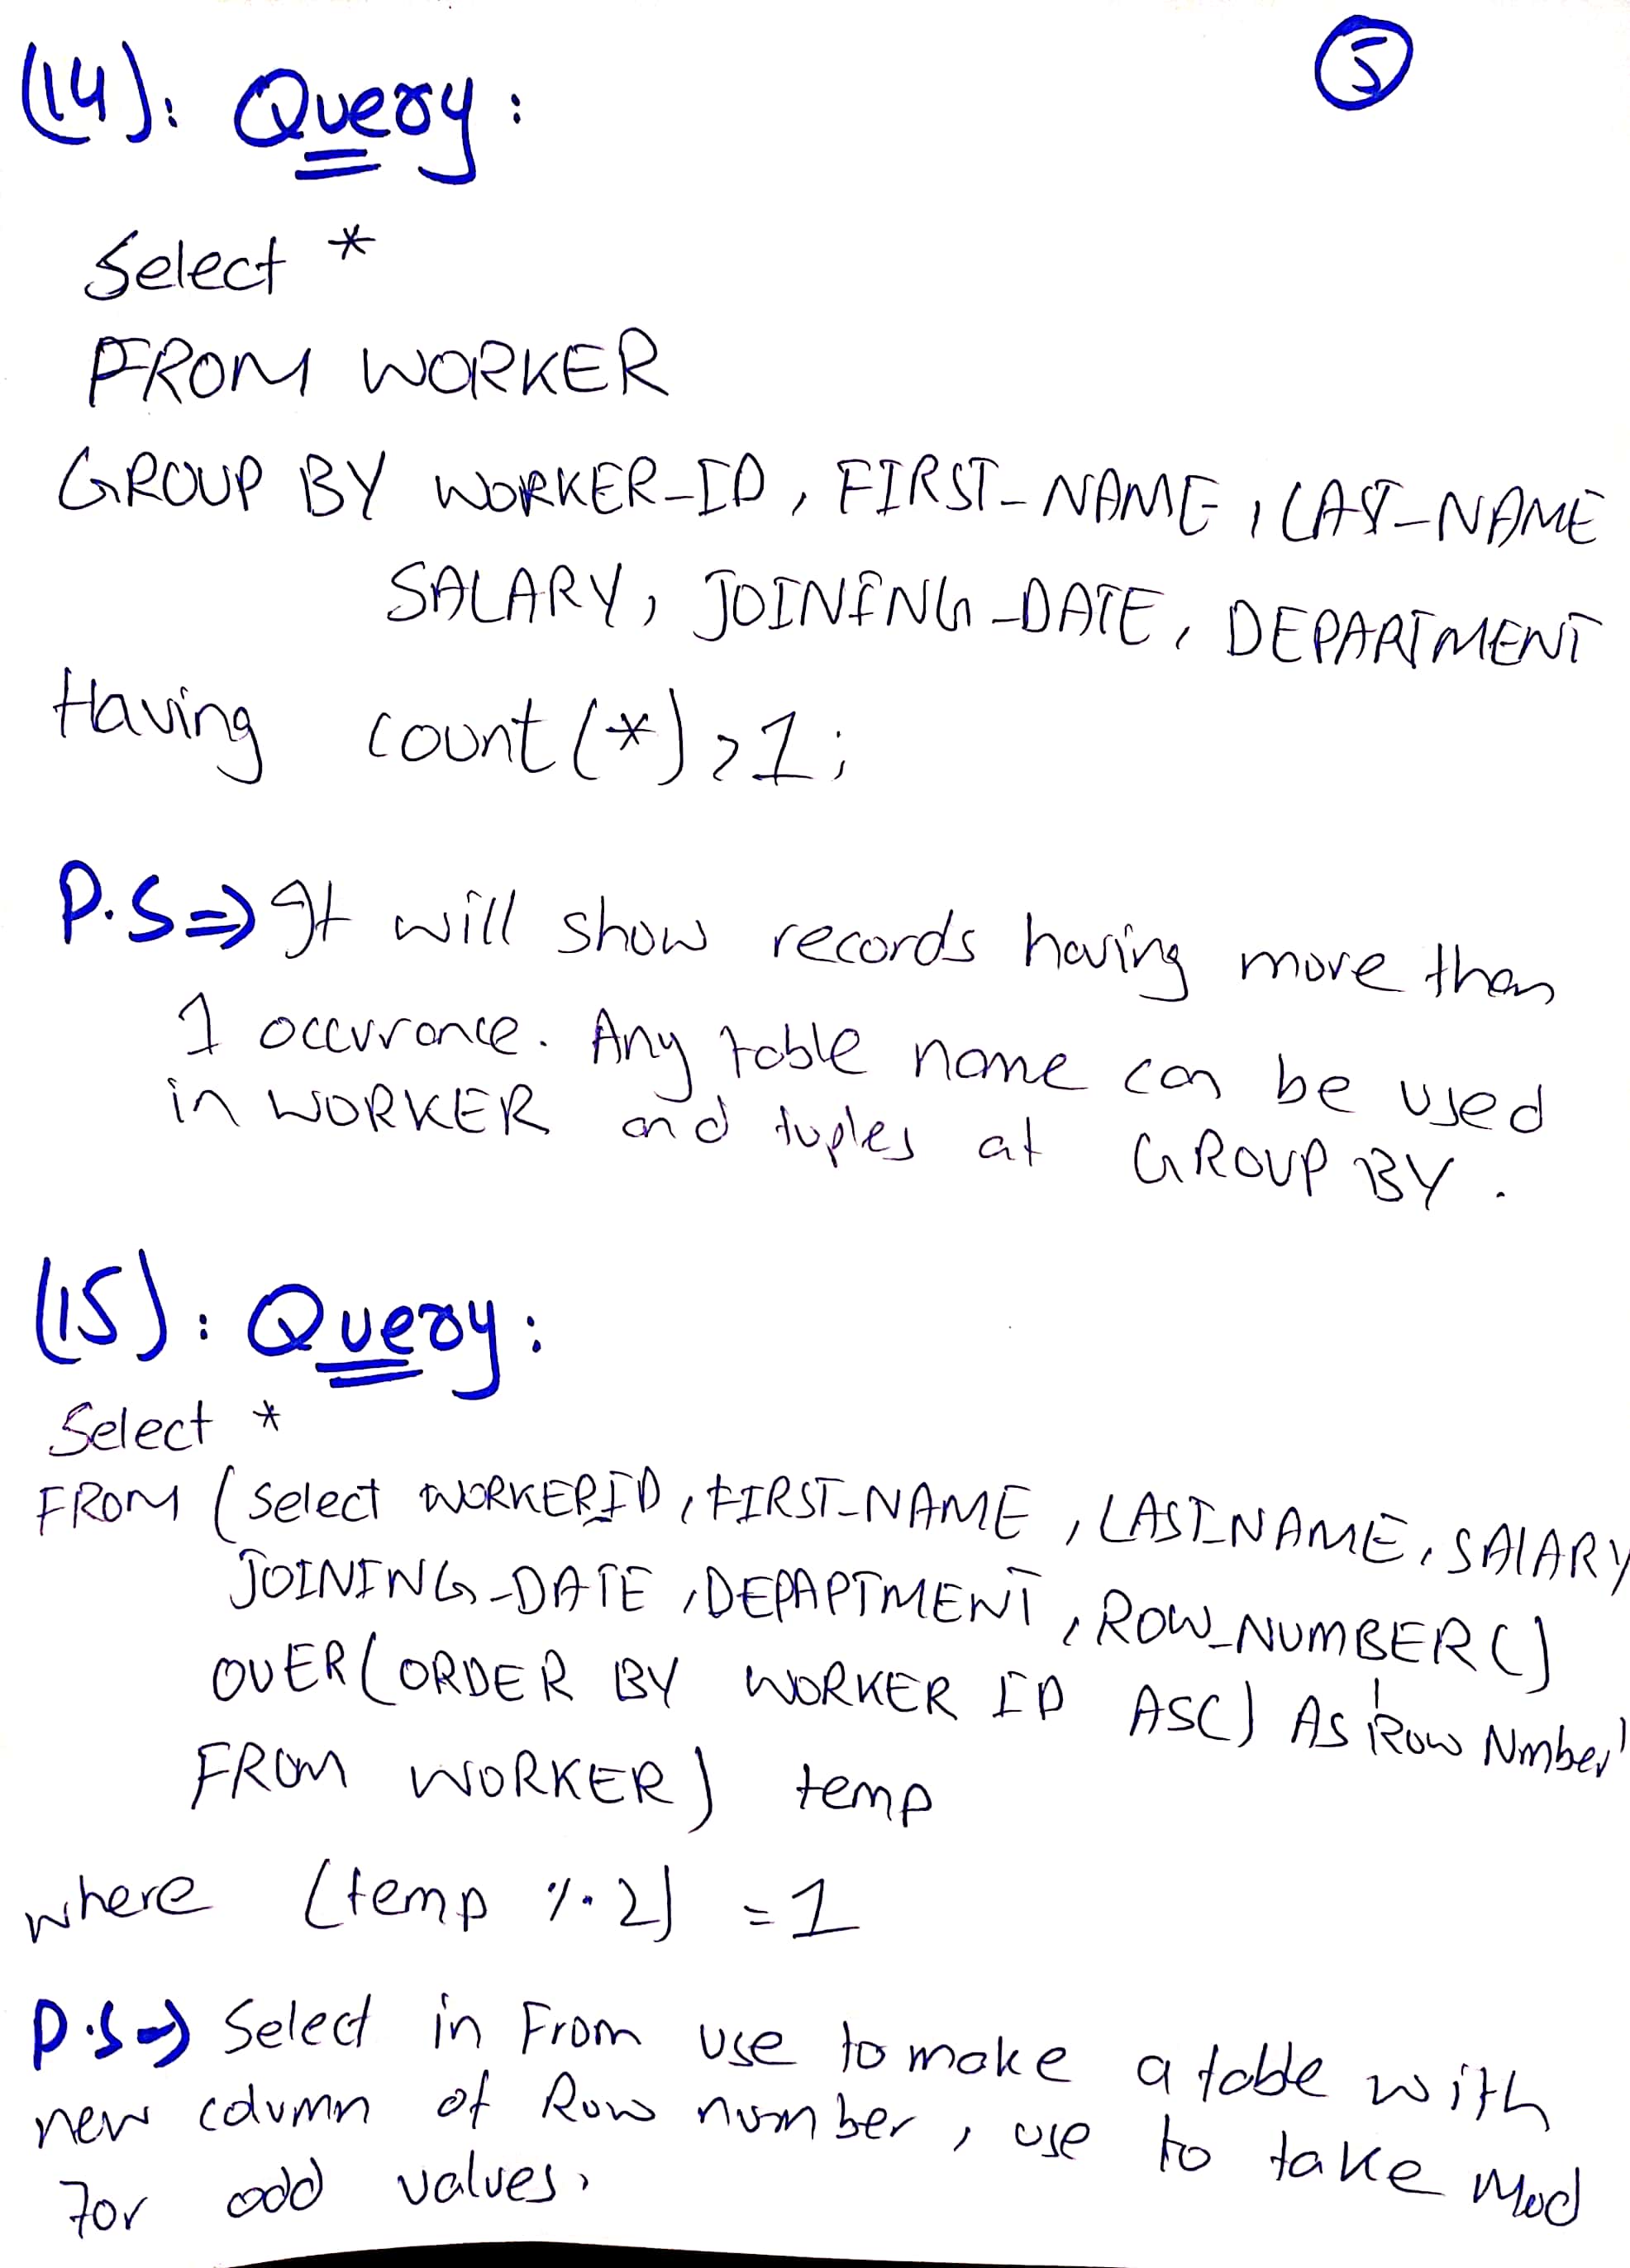 (5)
(14): Query:
Select *
FROM WORKER
GROUP BY WORKER_ID, FIRST_NAME, LAST_NAME
SALARY, JOINING_DATE, DEPARTMENT
Having count(*)>1;
P.S⇒ It will show records having more than
1 occurrance. Any table name can be used
in WORKER and tuples at GROUP BY.
(15): Query:
Select *
FROM (Select WORKERID, FIRST_NAME, LAST_NAME, SALARY
JOINING_DATE, DEPAPTMENT, ROW_NUMBER()
OVER(ORDER BY WORKER ID ASC) AS 'Row Nmber'
FROM WORKER) temp
where (temp %2) =1
P.S⇒ Select in From use to make a table with
new column of Row number, use to take Mod
For odd values.